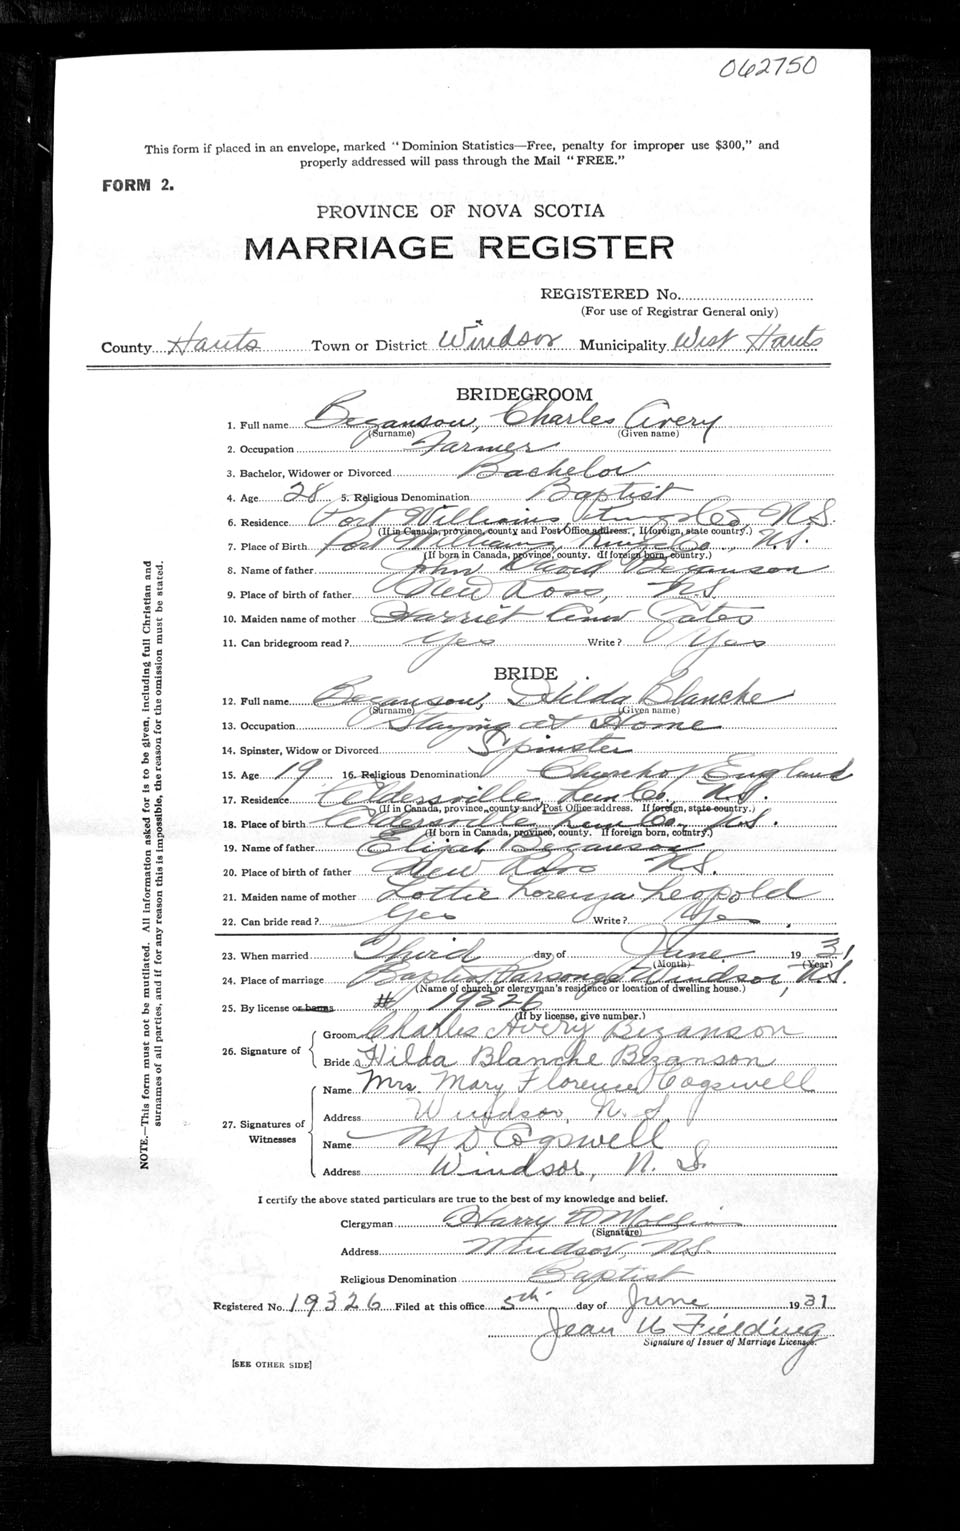 062750
This form if placed in an envelope, marked "Dominion Statistics—Free, penalty for improper use $300," and
properly addressed will pass through the Mail "FREE."
FORM 2.
PROVINCE OF NOVA SCOTIA
MARRIAGE REGISTER
REGISTERED No.
(For use of Registrar General only)
County Hants Town or District Windsor Municipality West Hants
BRIDEGROOM
1. Full name Bezanson, Charles Avery
(Surname) (Given name)
2. Occupation Farmer
3. Bachelor, Widower or Divorced Bachelor
4. Age 28 5. Religious Denomination Baptist
6. Residence Port Williams, Kings Co, N.S.
(If in Canada, province, county and Post Office address. If foreign, state country.)
7. Place of Birth Port Williams, Kings Co., N.S.
(If born in Canada, province, county. If foreign born, country.)
8. Name of father John David Bezanson
9. Place of birth of father New Ross, N.S.
10. Maiden name of mother Harriet Ann Gates
11. Can bridegroom read? Yes Write? Yes
BRIDE
12. Full name Bezanson, Hilda Blanche
(Surname) (Given name)
13. Occupation Staying at Home
14. Spinster, Widow or Divorced Spinster
15. Age 19 16. Religious Denomination Church of England
17. Residence Aldersville Lun Co. N.S.
(If in Canada, province, county and Post Office address. If foreign, state country.)
18. Place of birth Aldersville Lun Co. N.S.
(If born in Canada, province, county. If foreign born, country.)
19. Name of father Elijah Bezanson
20. Place of birth of father New Ross N.S.
21. Maiden name of mother Lottie Lorenza Leopold
22. Can bride read? Yes Write? Yes.
23. When married Third day of June 1931
(Month) (Year)
24. Place of marriage Baptist Parsonage Windsor, N.S.
(Name of church or clergyman's residence or location of dwelling house.)
25. By license or banns # 19326
(If by license, give number.)
26. Signature of
Groom Charles Avery Bezanson
Bride Hilda Blanche Bezanson
27. Signatures of Witnesses
Name Mrs. Mary Florence Cogswell
Address Windsor, N.S.
Name M D Cogswell
Address Windsor, N.S.
I certify the above stated particulars are true to the best of my knowledge and belief.
Clergyman Harry
(Signature)
Address Windsor, N.S.
Religious Denomination Baptist
Registered No. 19326 Filed at this office 5th day of June 1931
Jean Fielding
Signature of Issuer of Marriage License.
[SEE OTHER SIDE]
NOTE.—This form must not be mutilated. All information asked for is to be given, including full Christian and
surnames of all parties, and if for any reason this is impossible, the reason for the omission must be stated.